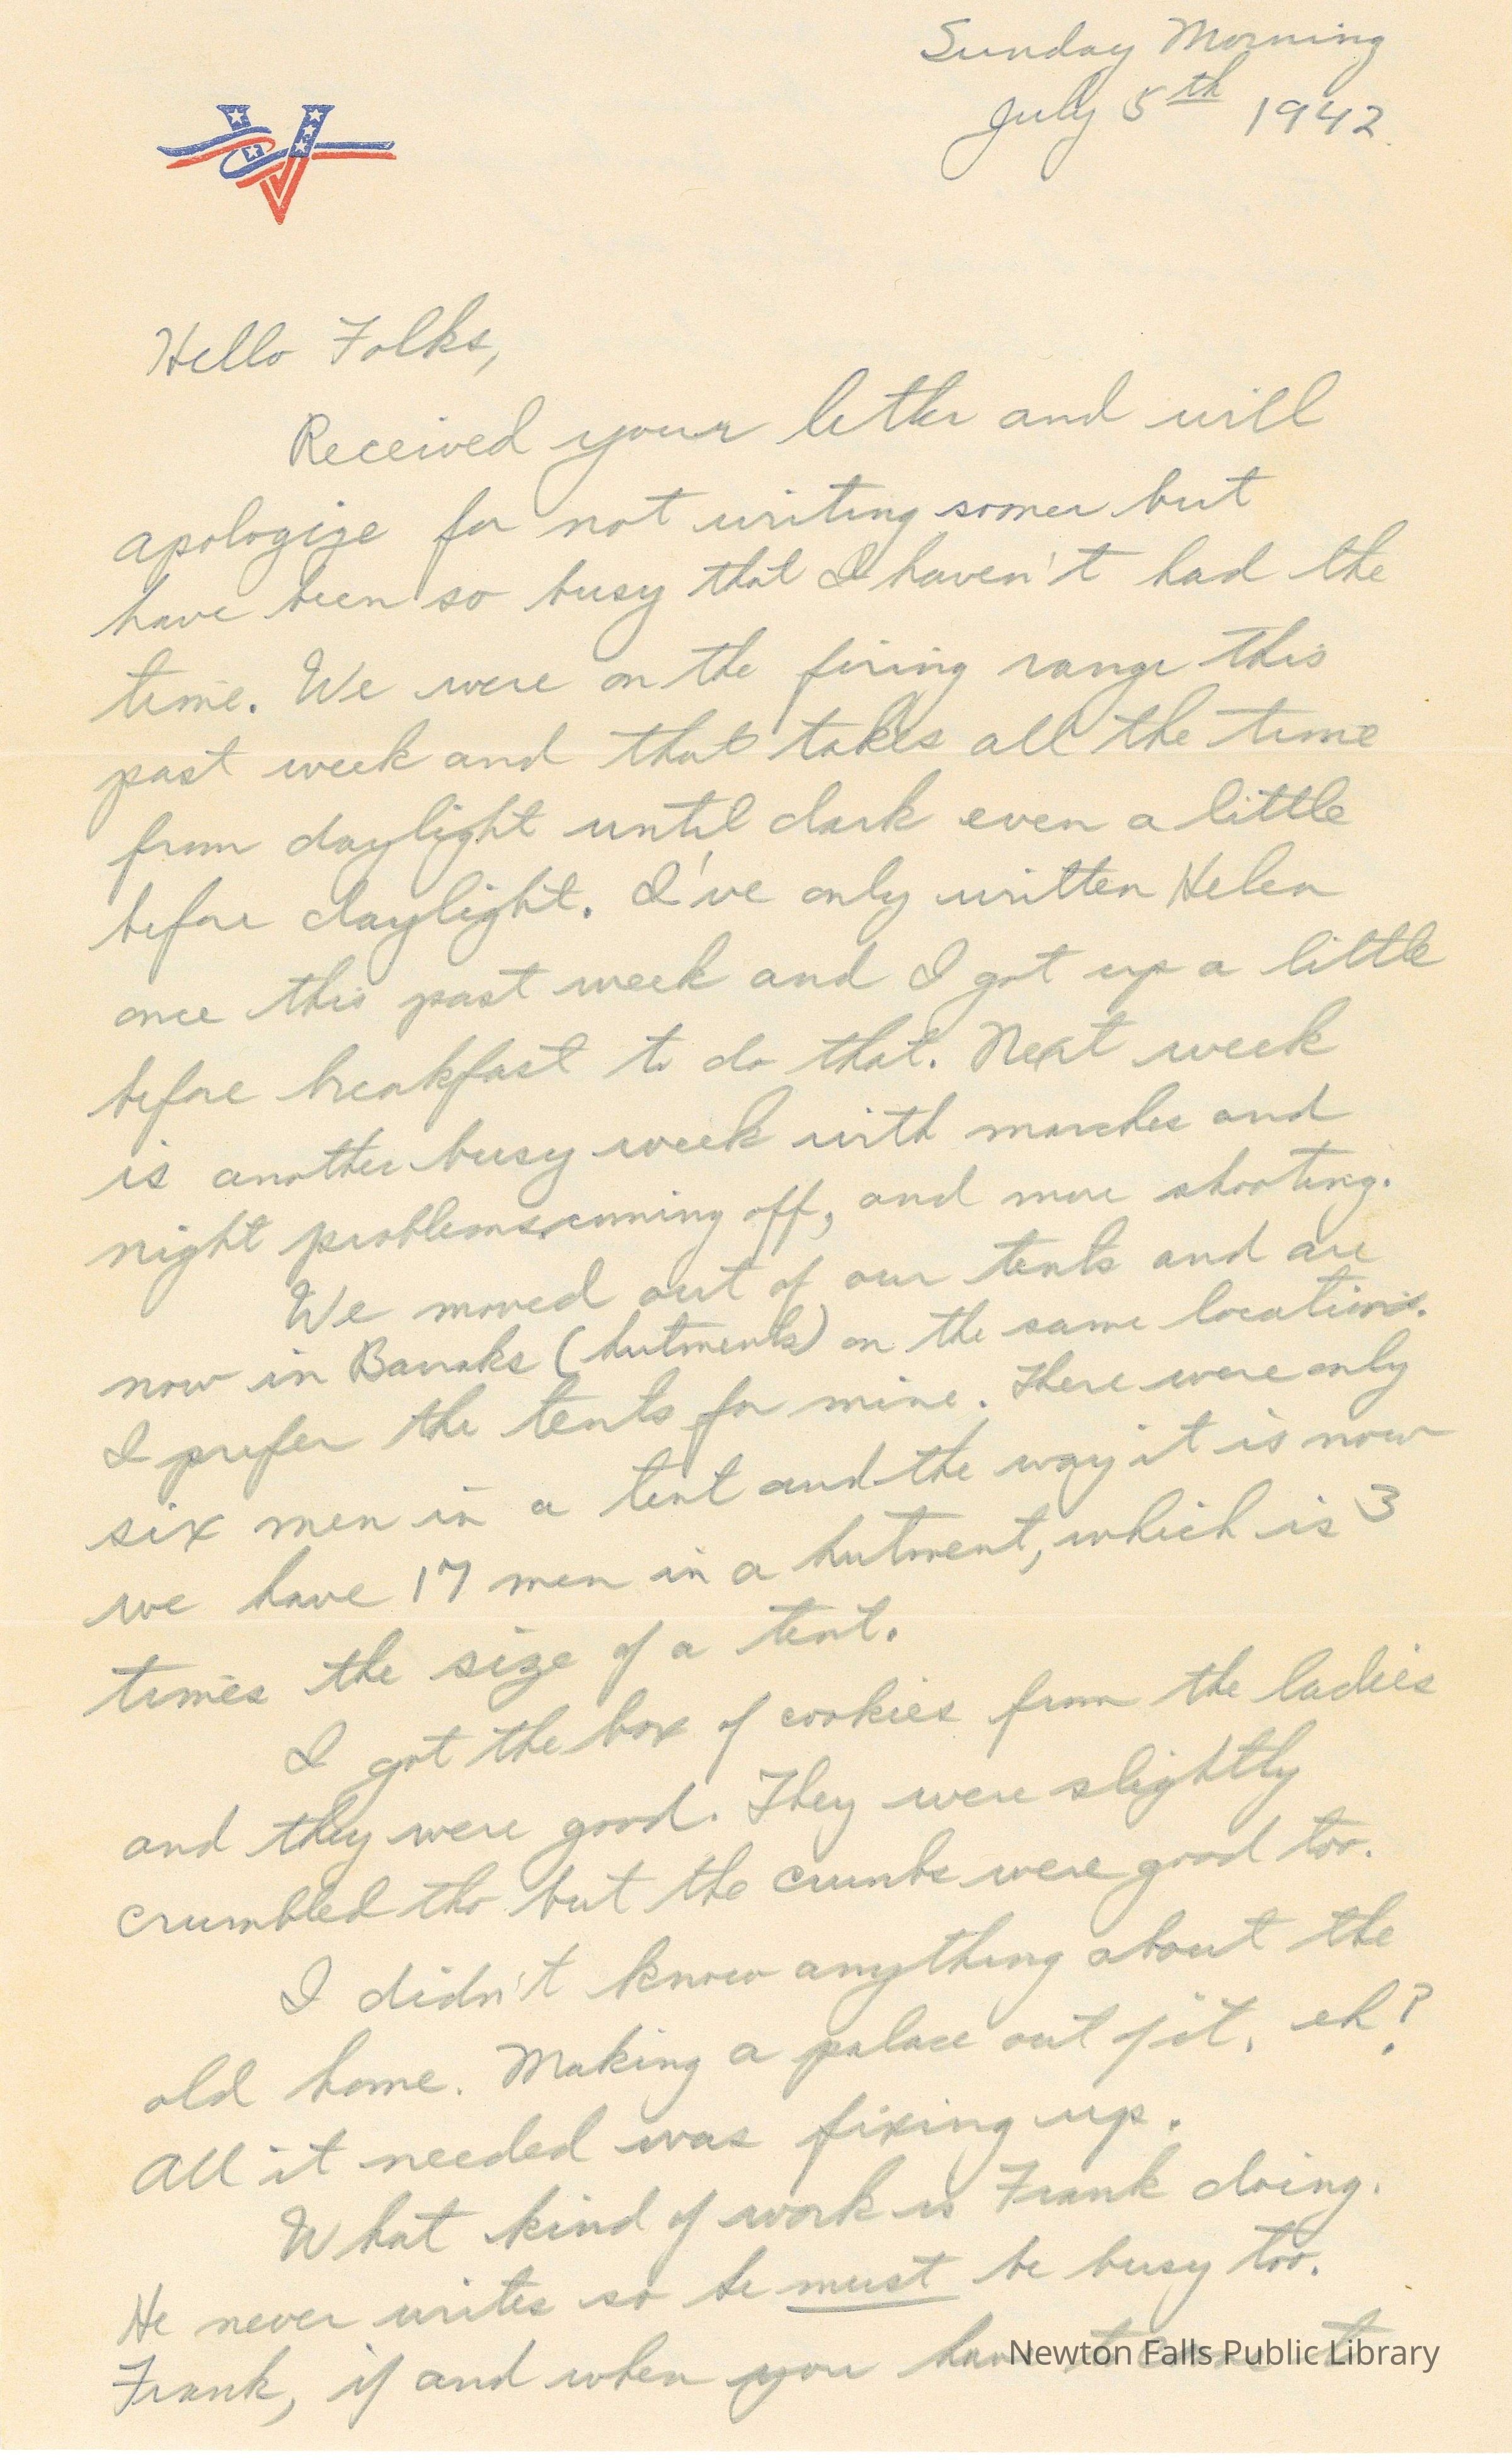 Sunday Morning
July 5th 1942.
Hello Folks,
Received your letter and will
apologize for not writing sooner but
have been so busy that I haven't had the
time. We were on the firing range this
past week and that takes all the time
from daylight until dark even a little
before daylight. I've only written Helen
once this past week and I got up a little
before breakfast to do that. Next week
is another busy week with marches and
night problems coming off, and more shooting.
We moved out of our tents and are
now in Barraks (hutments) on the same locations.
I prefer the tents for mine. There were only
six men in a tent and the way it is now
we have 17 men in a hutment, which is 3
times the size of a tent.
I got the box of cookies from the ladies
and they were good. They were slightly
crumbled tho but the crumbs were good too.
I didn't know anything about the
old home. Making a palace out of it, eh?
All it needed was fixing up.
What kind of work is Frank doing.
He never writes so he must be busy too.
Frank, if and when you have to
Newton Falls Public Library